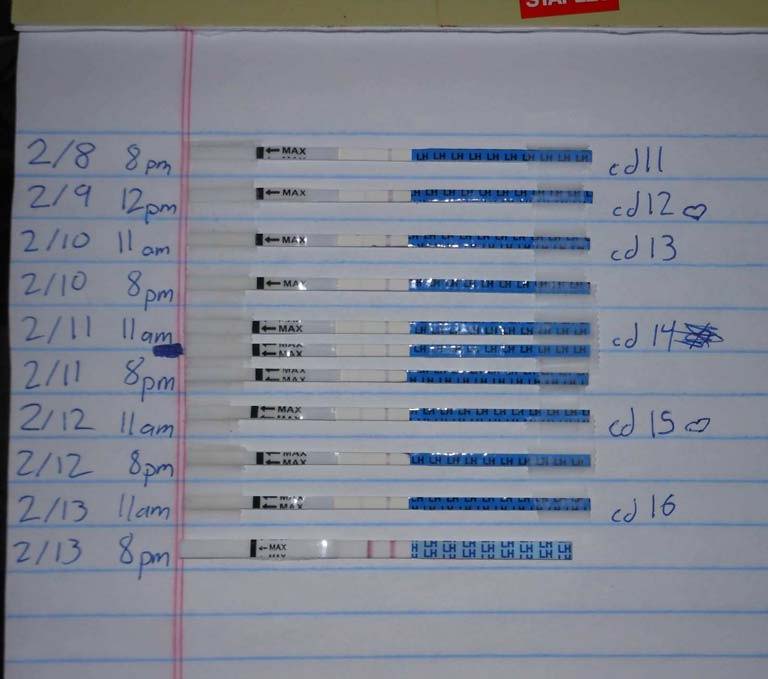 2/8 8pm ← MAX LH LH LH LH LH LH LH LH LH LH cd11
2/9 12pm ← MAX LH LH LH LH LH LH LH LH LH LH cd12
2/10 11am ← MAX LH LH LH LH LH LH LH LH LH LH cd13
2/10 8pm ← MAX LH LH LH LH LH LH LH LH LH LH
2/11 11am ← MAX LH LH LH LH LH LH LH LH LH LH cd14
← MAX LH LH LH LH LH LH LH LH LH LH
2/11 8pm ← MAX LH LH LH LH LH LH LH LH LH LH
2/12 11am ← MAX LH LH LH LH LH LH LH LH LH LH cd15
2/12 8pm ← MAX LH LH LH LH LH LH LH LH LH LH
2/13 11am ← MAX LH LH LH LH LH LH LH LH LH LH cd16
2/13 8pm ← MAX LH LH LH LH LH LH LH LH LH